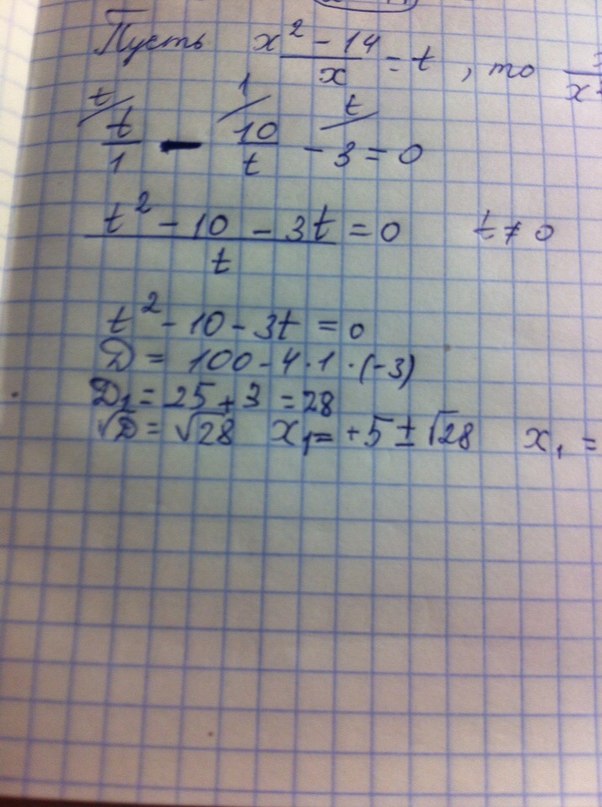 Пусть x² - 14 / x = t , то
t/ 1/ t/
t/1 - 10/t - 3 = 0
t² - 10 - 3t / t = 0 t ≠ 0
t² - 10 - 3t = 0
D = 100 - 4·1·(-3)
D₁ = 25 + 3 = 28
√D = √28 x₁ = +5 ± √28 x₁ =